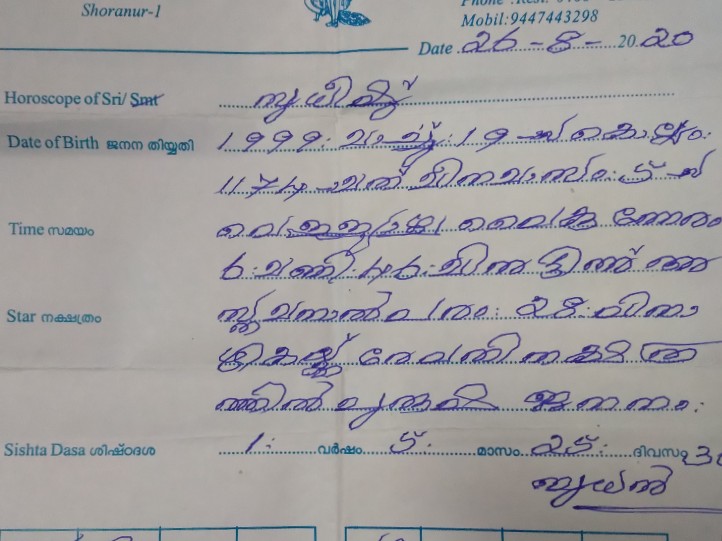 Shoranur-1
Mobil:9447443298
Date 26-8-2020
Horoscope of Sri/Smt സുധീഷ്
Date of Birth ജനന തിയ്യതി 1999. മാർച്ച്. 19-ന് കൊല്ലം.
1174-മത് മീനമാസം. 5-ന്
Time സമയം വെള്ളിയാഴ്ച വൈകുന്നേരം
6. മണി. 46. മിനുട്ടിന്
Star നക്ഷത്രം 28.
രേവതിനക്ഷത്ര
ത്തിൽ ജനനം.
Sishta Dasa ശിഷ്ഠദശ 1. വർഷം 5. മാസം 25. ദിവസം
ബുധൻ